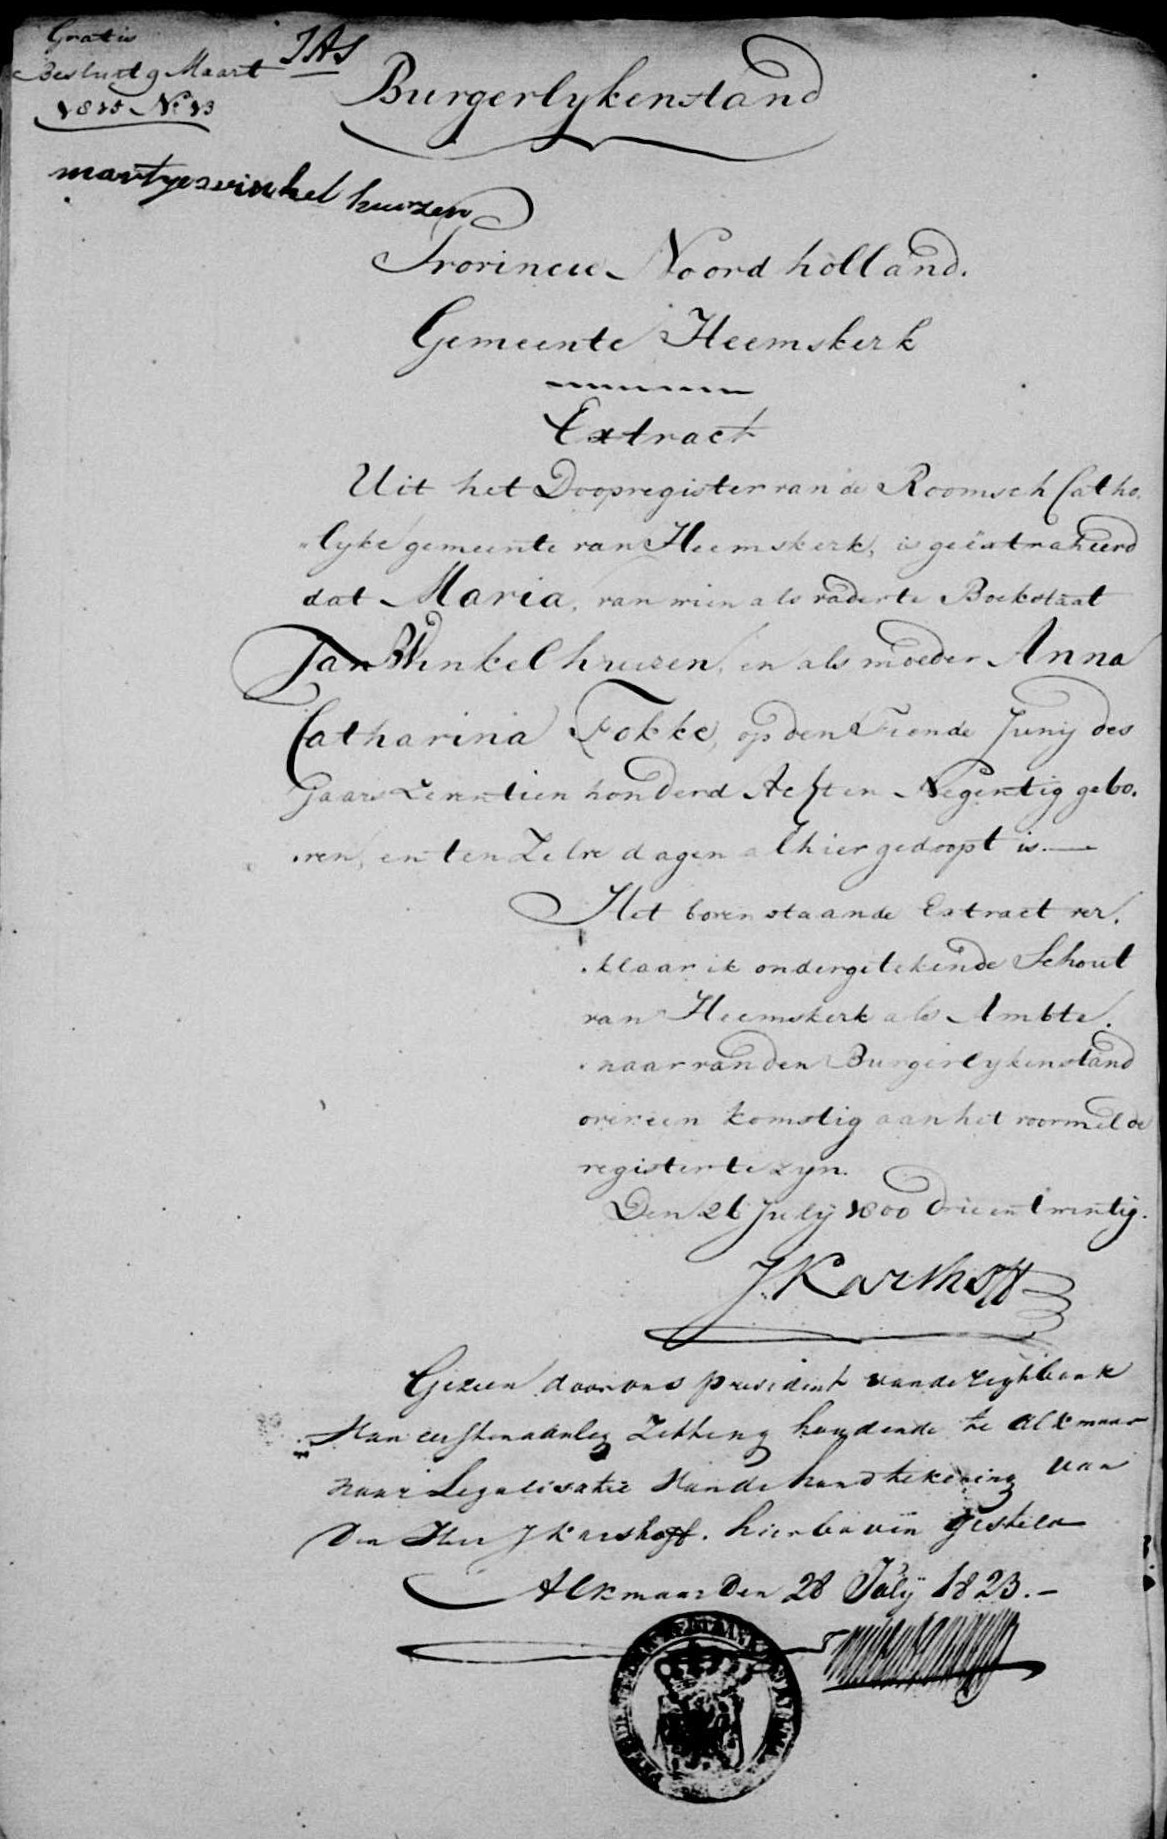 Gratis
Besluit 9 Maart
1815 No 13
Burgerlykenstand
martye winkel huizen
Provincie Noord holland.
Gemeente Heemskerk
Extract
Uit het Doopregister van de Roomsch Catho.
"lyke gemeente van Heemskerk, is geëxtraheerd
dat Maria, van wien als vader te Boek staat
Jan Winkelhuizen, en als moeder Anna
Catharina Fokke, op den Tiende Junij des
Jaars Zeventien honderd Acht en Negentig gebo.
.ren, en ten Zelve dagen alhier gedoopt is.—
Het bovenstaande Extract ver.
.klaar ik ondergetekende Schout
van Heemskerk als Ambte.
.naar van den Burgerlykenstand
overeen komstig aan het voormelde
register te zyn.
Den 26 July 1800 drie en twintig.
J. Karshoff
Gezien door ons president van de regtbank
Van eersten aanleg Zitting houdende te Alkmaar
voor Legalisatie Van de handtekening van
Den Heer J Karshoff. hier boven gesteld
Alkmaar Den 28 July 1823.—